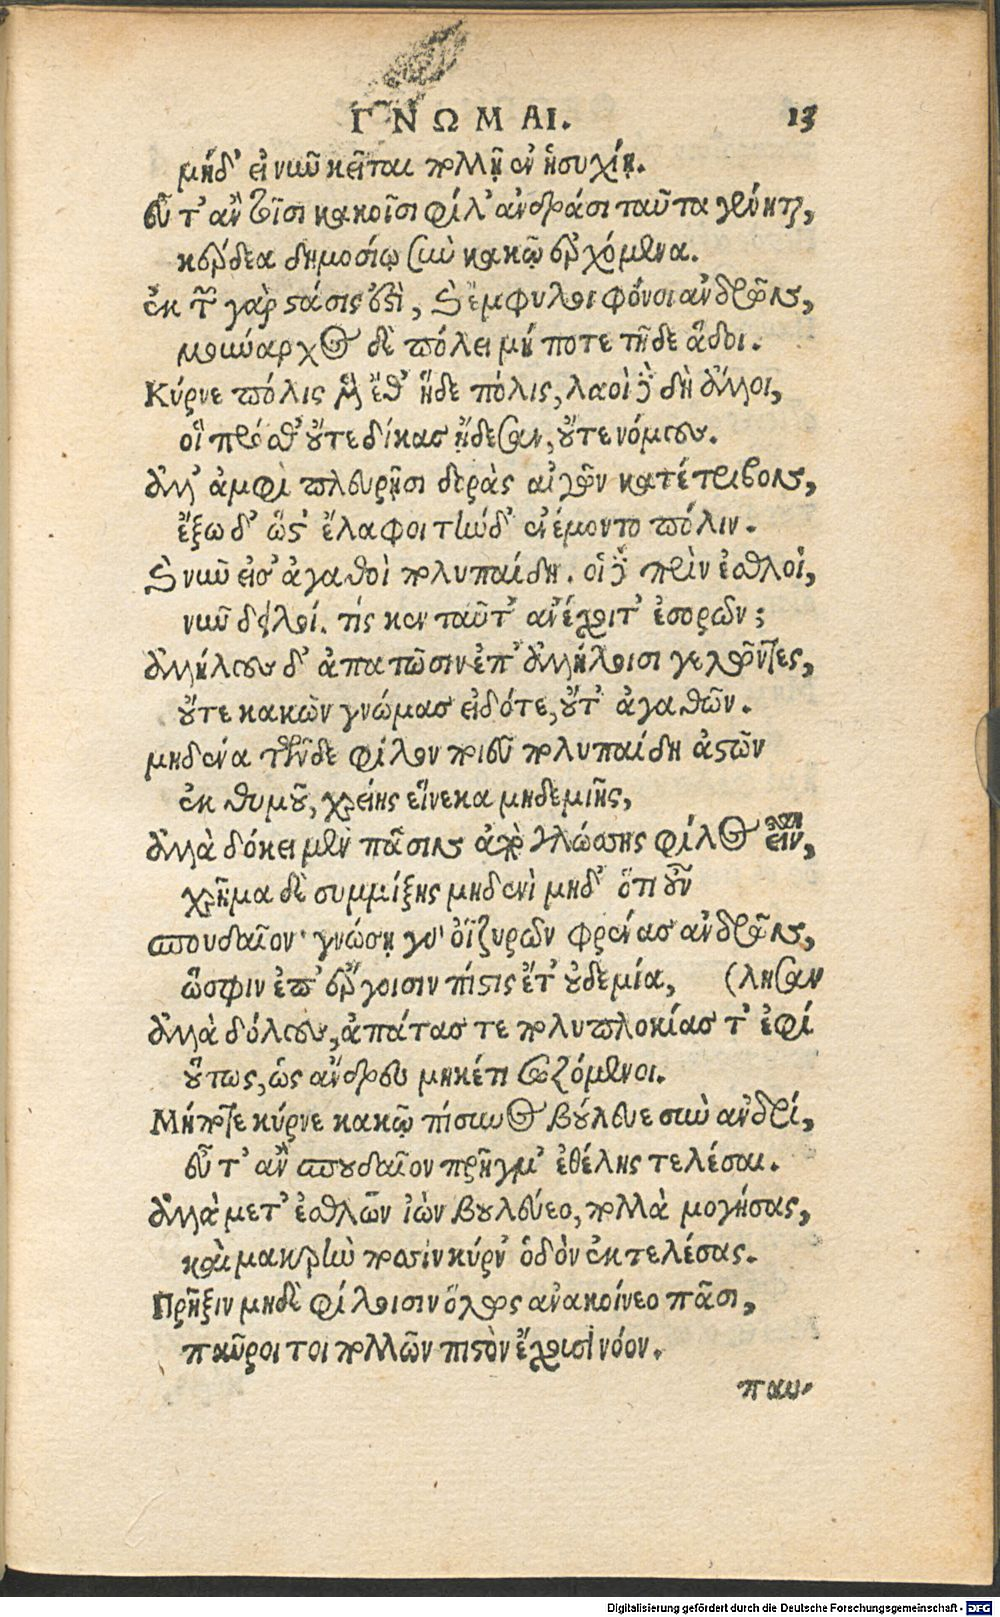 ΓΝΩΜΑΙ. 13
μηδ' εἰ νῦν κεῖται πολλῇ ἐν ἡσυχίῃ.
εὖτ' ἂν τοῖσι κακοῖσι φίλ' ἀνδράσι ταῦτα γένηται,
κέρδεα δημοσίῳ σὺν κακῷ ἐρχόμενα.
ἐκ τῶν γὰρ στάσις ἐστὶ, καὶ ἔμφυλοι φόνοι ἀνδρῶν,
μούναρχος δὲ πόλει μή ποτε τῇδε ἅδοι.
Κύρνε πόλις μὲν ἔθ' ἥδε πόλις, λαοὶ δὲ δὴ ἄλλοι,
οἳ πρόσθ' οὔτε δίκας ᾔδεσαν, οὔτε νόμους.
ἀλλ' ἀμφὶ πλευρῇσι δορὰς αἰγῶν κατέτριβον,
ἔξω δ' ὥστ' ἔλαφοι τήνδ' ἐνέμοντο πόλιν.
καὶ νῦν εἰσ' ἀγαθοὶ πολυπαίδη. οἱ δὲ πρὶν ἐσθλοὶ,
νῦν δειλοί. τίς κεν ταῦτ' ἀνέχοιτ' ἐσορῶν;
ἀλλήλους δ' ἀπατῶσιν ἐπ' ἀλλήλοισι γελῶντες,
οὔτε κακῶν γνώμας εἰδότε, οὔτ' ἀγαθῶν.
μηδένα τῶνδε φίλον ποιεῦ πολυπαίδη ἀστῶν
ἐκ θυμοῦ, χρείης εἵνεκα μηδεμιῆς,
ἀλλὰ δόκει μὲν πᾶσιν ἀπὸ γλώσσης φίλος εἶναι,
χρῆμα δὲ συμμίξῃς μηδενὶ μηδ' ὅτι οὖν
σπουδαῖον· γνώσῃ γὰρ ὀϊζυρῶν φρένας ἀνδρῶν,
ὥς σφιν ἐπ' ἔργοισιν πίστις ἔτ' οὐδεμία, (λησαν
ἀλλὰ δόλους, ἀπάτας τε πολυπλοκίας τ' ἐφί
οὕτως, ὡς ἄνδρες μηκέτι σωζόμενοι.
Μήποτε κύρνε κακῷ πίσυνος βούλευε σὺν ἀνδρί,
εὖτ' ἂν σπουδαῖον πρῆγμ' ἐθέλῃς τελέσαι.
ἀλλὰ μετ' ἐσθλῶν ἰὼν βουλεύεο, πολλὰ μογήσας,
καὶ μακρὴν ποσὶν κύρν' ὁδὸν ἐκτελέσας.
Πρῆξιν μηδὲ φίλοισιν ὅλως ἀνακοίνεο πᾶσι,
παῦροι τοι πολλῶν πιστὸν ἔχουσι νόον.
παυ-
Digitalisierung gefördert durch die Deutsche Forschungsgemeinschaft - DFG